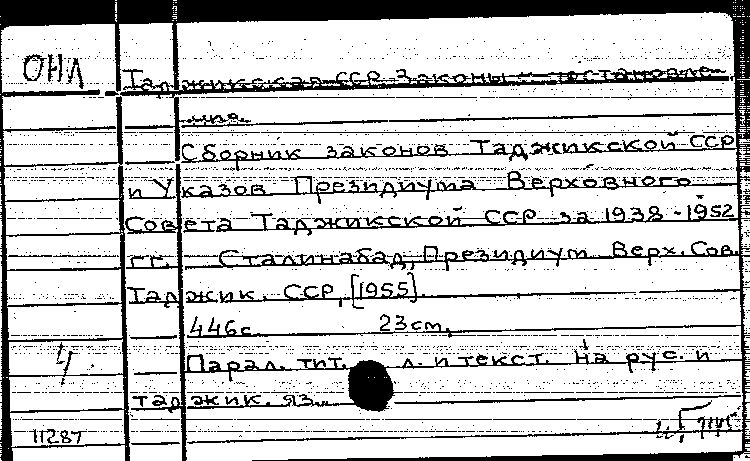 ОНЛ
Таджикская ССР. Законы и постановле-
ния.
Сборник законов Таджикской ССР
и Указов Президиума Верховного
Совета Таджикской ССР за 1938-1952
гг. Сталинабад, Президиум Верх. Сов.
Таджик. ССР, [1955].
446с. 23см.
Парал. тит. л. и текст. на рус. и
таджик. яз.
4
11287